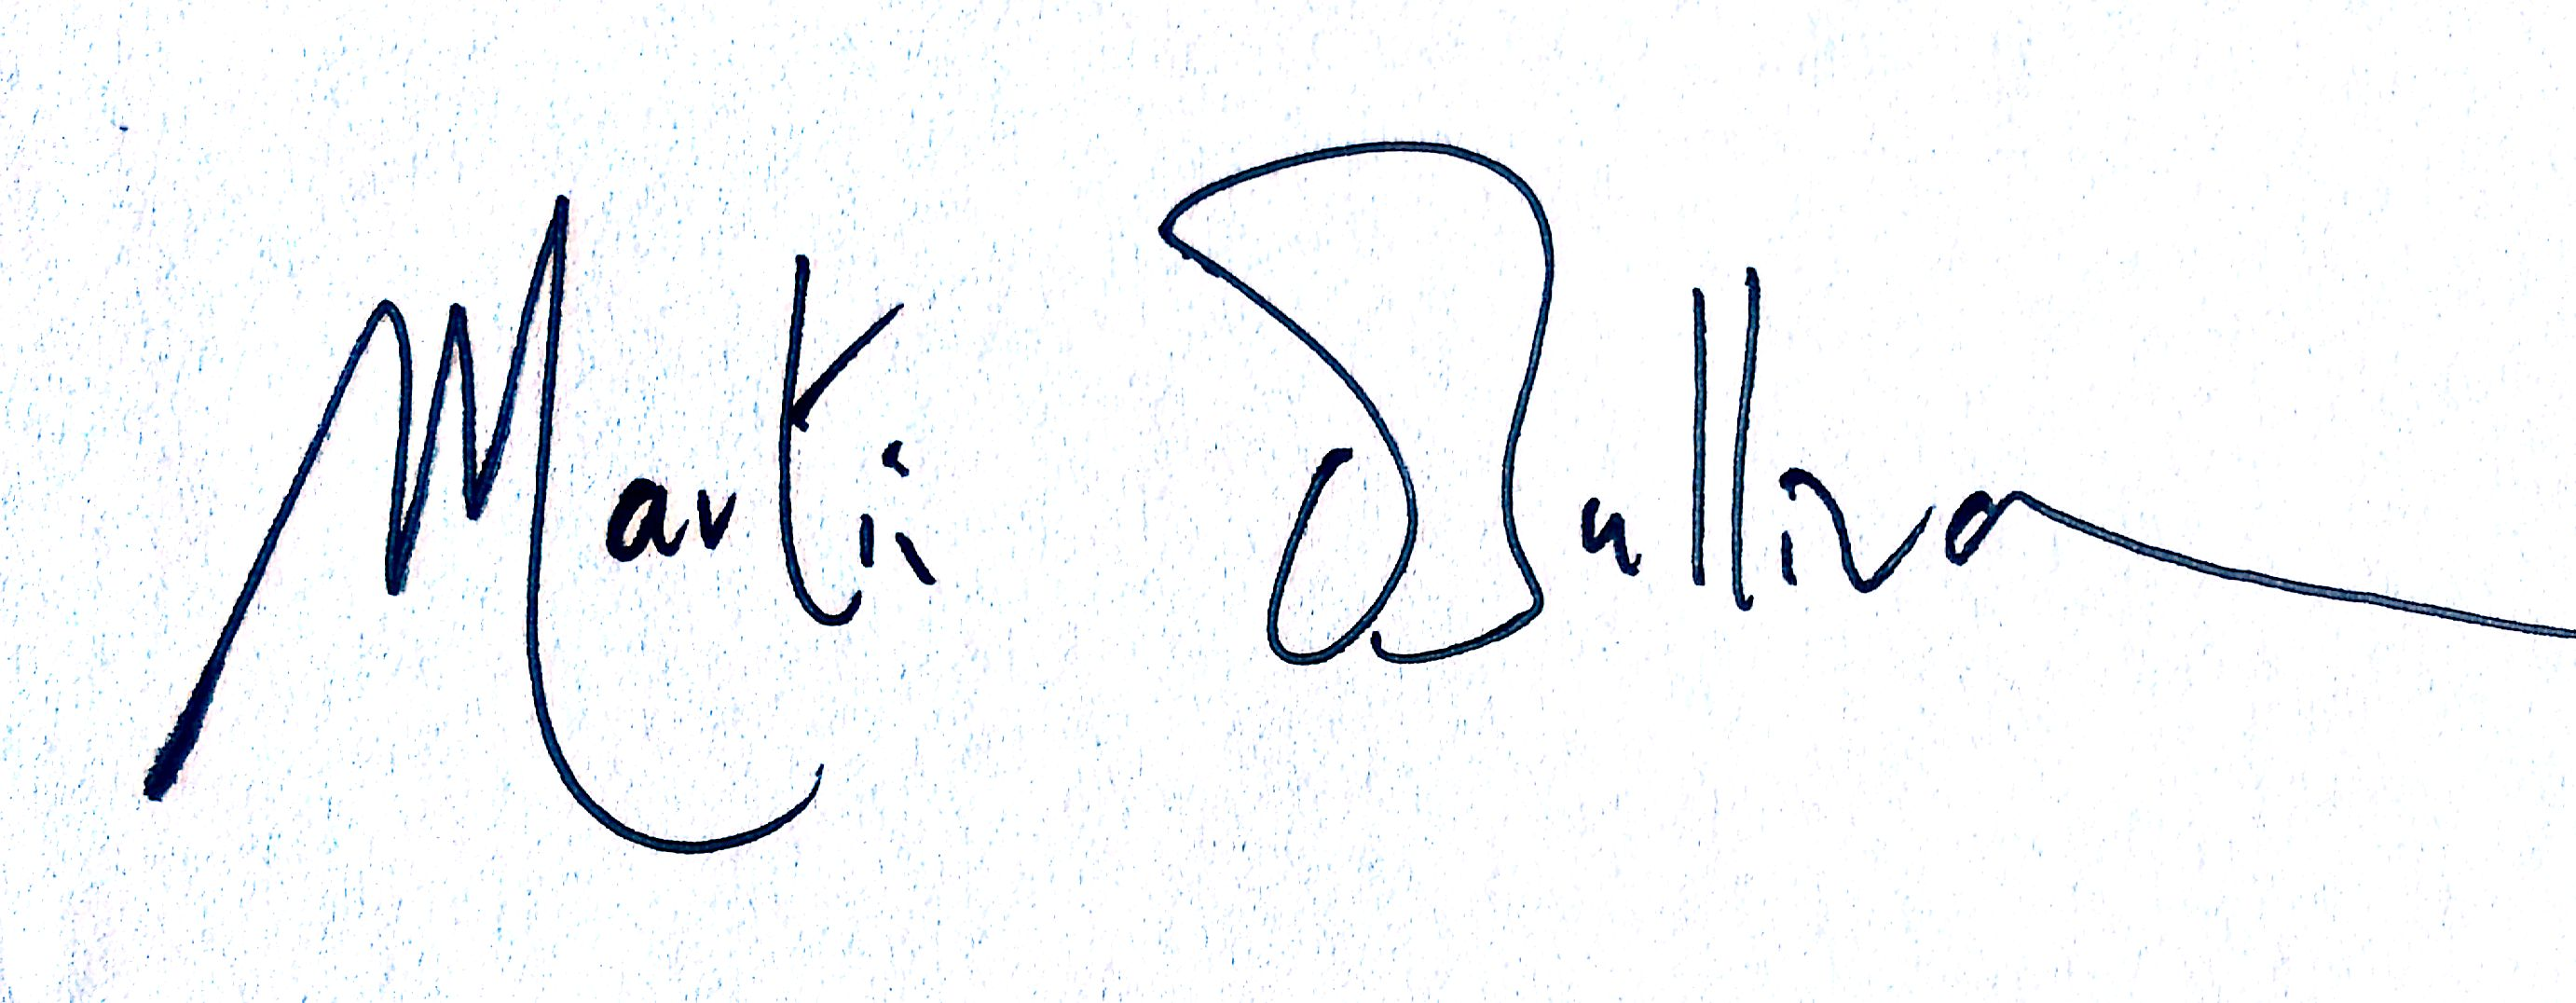 Martin Sullivan